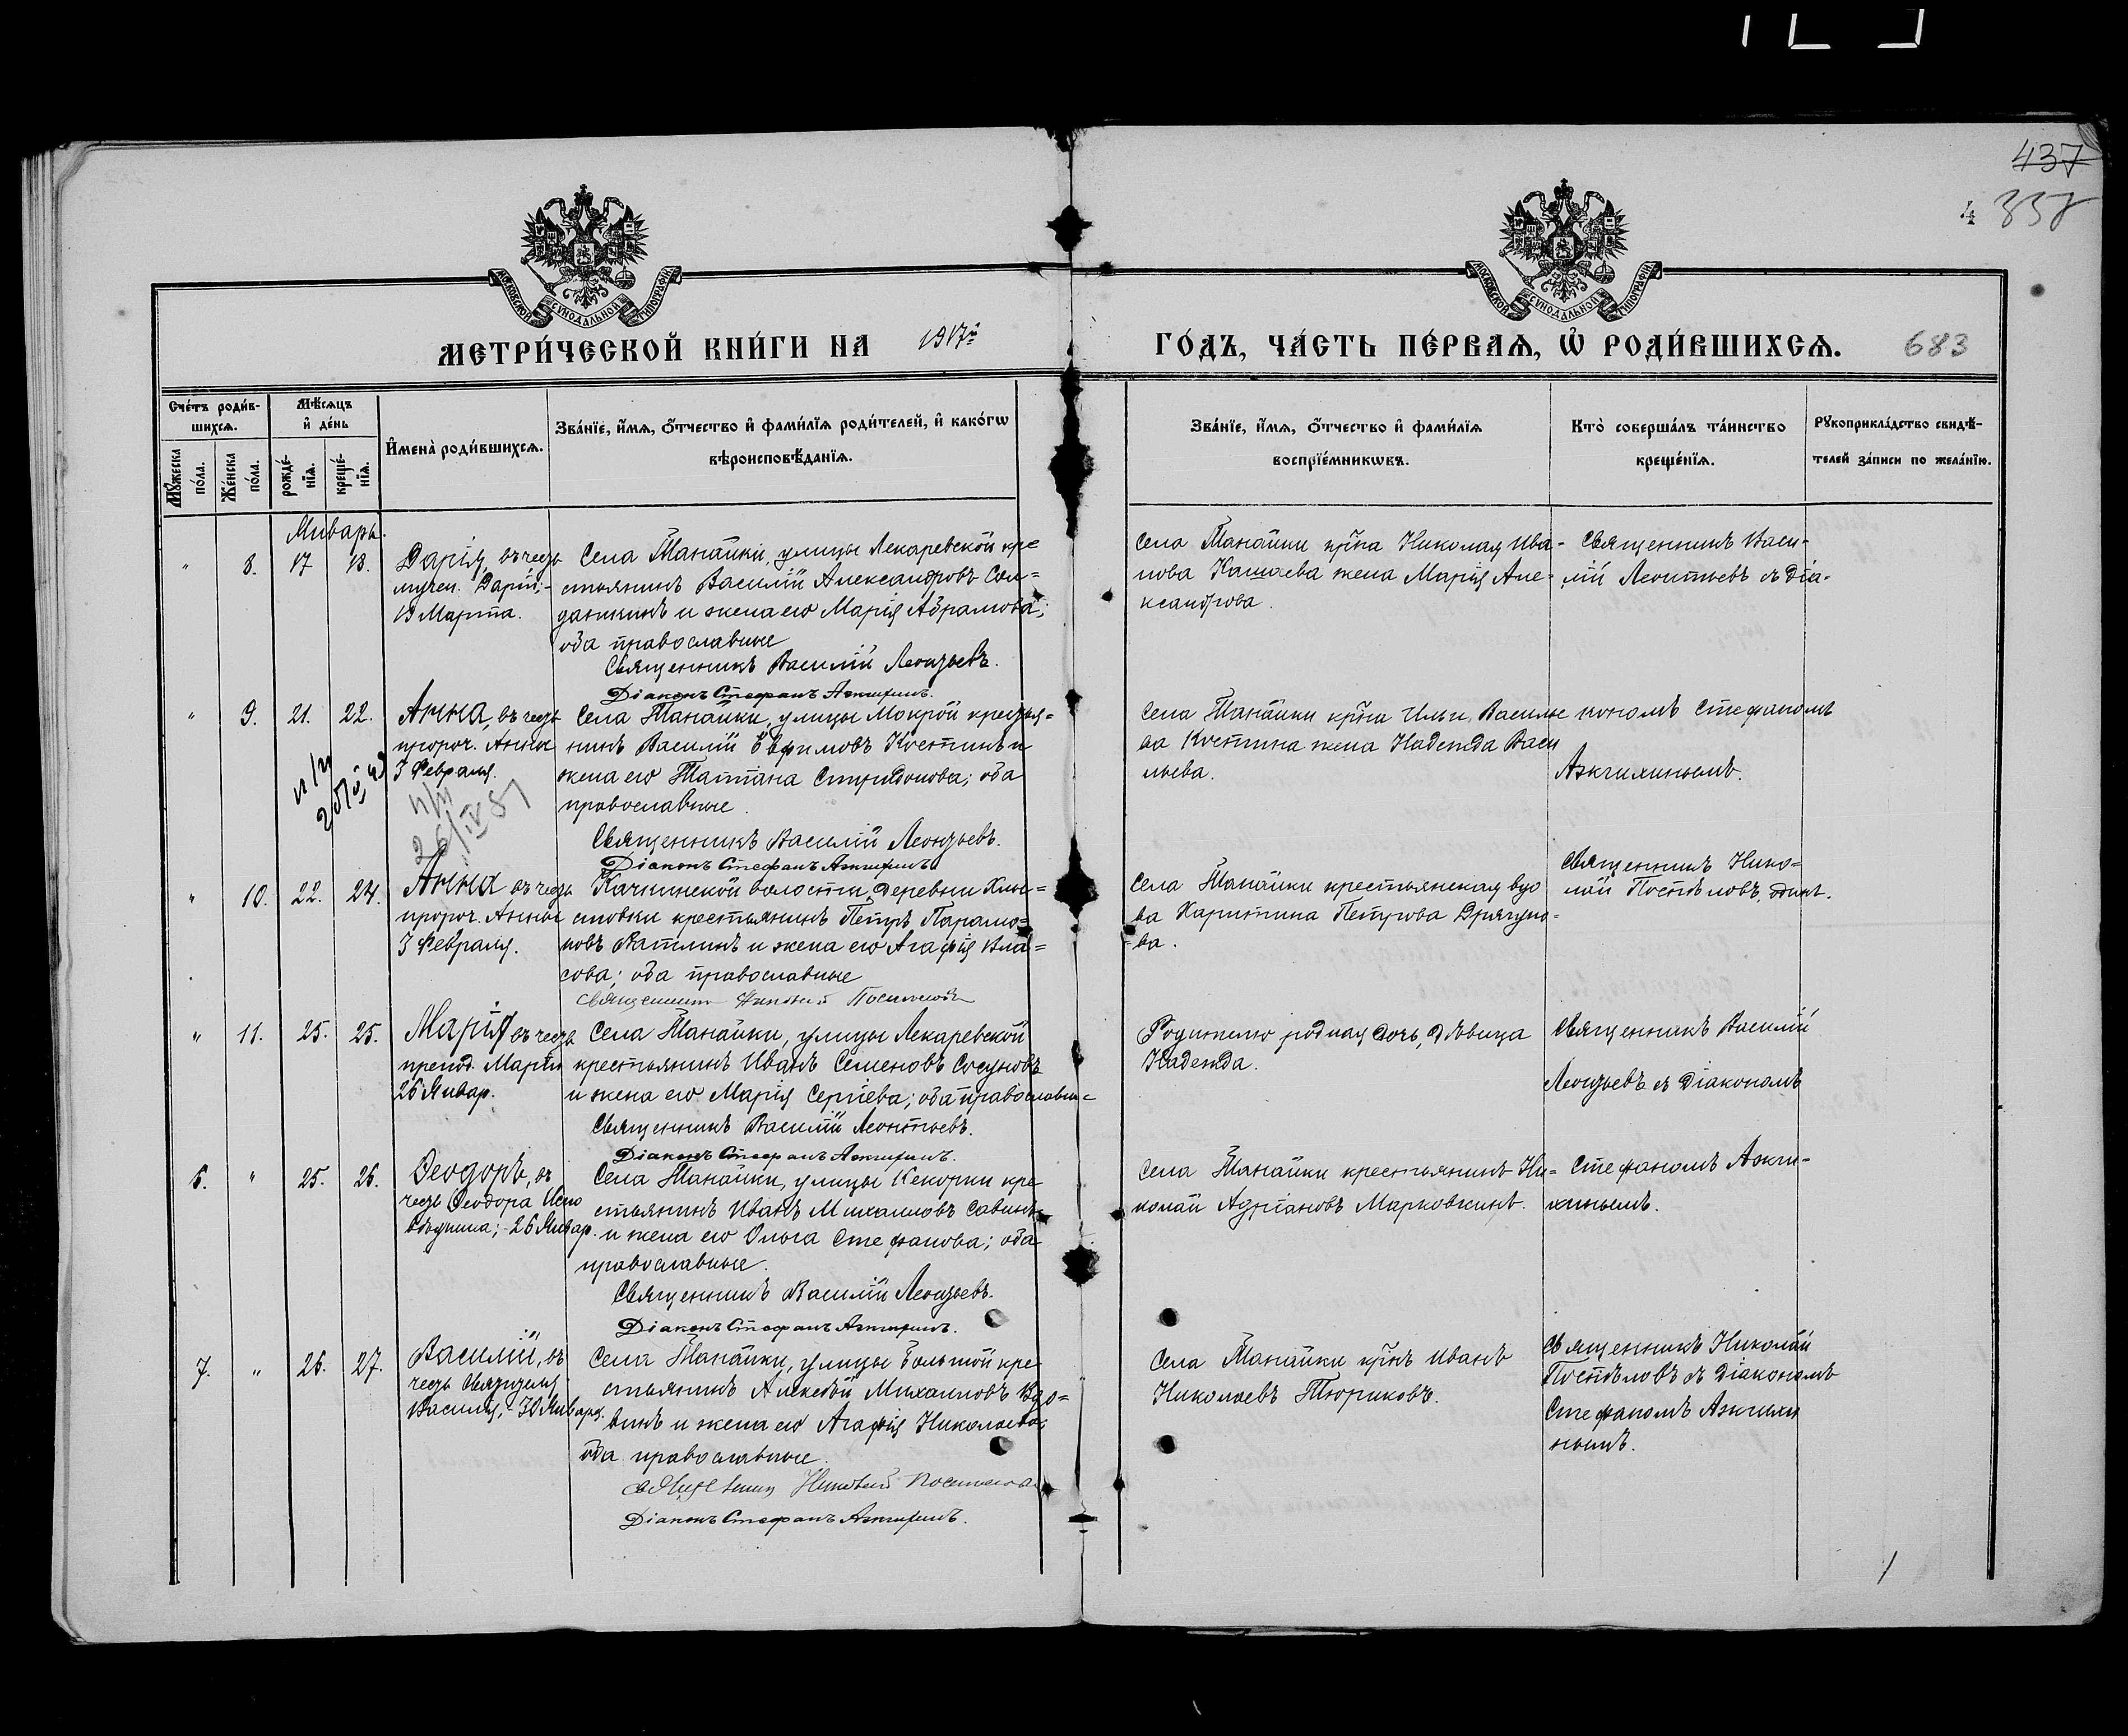 437
4 337
МОСКОВСКОЙ СѴНОДАЛЬНОЙ ТИПОГРАФІИ
МОСКОВСКОЙ СѴНОДАЛЬНОЙ ТИПОГРАФІИ
МЕТРИ́ЧЕСКОЙ КНИ́ГИ НА 1917й ГО́ДЪ, ЧА́СТЬ ПЕ́РВАѦ, Ѽ РОДИ́ВШИХСѦ. 683
Сче́тъ роди́в-
шихсѧ.
Мꙋ́жеска
по́ла.
Же́нска
по́ла.
Мѣ́сѧцъ
и҆ де́нь
рожде́-
нїѧ.
креще́-
нїѧ.
И҆мена̀ роди́вшихсѧ.
Зва́нїе, и҆́мѧ, ѻ҆́тчество и҆ фами́лїѧ роди́телей, и҆ како́гѡ
вѣроисповѣ́данїѧ.
Зва́нїе, и҆́мѧ, ѻ҆́тчество и҆ фами́лїѧ
воспрїе́мникѡвъ.
Кто̀ соверша́лъ та́инство
креще́нїѧ.
Рꙋкоприкла́дство свидѣ́-
телей за́писи по жела́нїю.
Январь.
" 8. 17 18.
Дарія, въ честь
мучен. Даріи;-
19 Марта.
Села Танайки, улицы Лекаревской кре
стьянинъ Василій Александровъ Сол-
даткинъ и жена его Марія Абрамова;
оба православные
Священникъ Василій Леонтьевъ.
Діаконъ Стефанъ Ажгихинъ.
Села Танайки кр̃на Николая Ива-
нова Кашаева жена Марія Але-
ксандрова.
Священникъ Васи-
лій Леонтьевъ съ Діа-
" 9. 21. 22.
Анна, въ честь
пророч. Анны
3 Февраля.
п/п
26/IV 81
Села Танайки, улицы Мокрой крестья-
нинъ Василій Евфимовъ Костинъ и
жена его Татіана Спиридонова; оба
православные.
Священникъ Василій Леонтьевъ.
Діаконъ Стефанъ Ажгихинъ
Села Танайки кр̃на Ильи Василье
ва Костина жена Надежда Васи
льева.
кономъ Стефаномъ
Ажгихинымъ.
" 10. 22. 24.
Анна въ честь
пророч. Анны
3 Февраля.
Качкинской волости, деревни Хлы-
стовки крестьянинъ Петръ Парамо-
новъ Ватлинъ и жена его Агафія Вла-
сова; оба православные
Священникъ Николай Поспѣловъ
Села Танайки крестьянская вдо
ва Харитина Петрова Дрягуно-
ва.
Священникъ Нико-
лай Поспѣловъ, одинъ.
" 11. 25. 25.
Марія въ честь
препод. Маріи
26 Январ.
Села Танайки, улицы Лекаревской
крестьянинъ Иванъ Семеновъ Сосуновъ
и жена его Марія Сергіева; оба православн-
Священникъ Василій Леонтьевъ.
Діаконъ Стефанъ Ажгихинъ.
Родителю родная дочь, дѣвица
Надежда.
Священникъ Василій
Леонтьевъ съ Діакономъ
6. " 25. 26.
Ѳеодоръ, въ
честь Ѳеодора Испо
вѣдника;- 26 Январ.
Села Танайки, улицы Кекорки кре
стьянинъ Иванъ Михаиловъ Савинъ
и жена его Ольга Стефанова; оба
православные.
Священникъ Василій Леонтьевъ.
Діаконъ Стефанъ Ажгихинъ.
Села Танайки крестьянинъ Ни-
колай Адріановъ Марковкинъ.
Стефаномъ Ажги-
хинымъ.
7. " 26. 27.
Василій, въ
честь Святителя
Василія,- 30 Января.
Села Танайки, улицы Большой кре
стьянинъ Алексѣй Михаиловъ Вдо-
винъ и жена его Агафія Николаева;
оба православные.
Священникъ Николай Поспѣловъ
Діаконъ Стефанъ Ажгихинъ.
Села Танайки кр̃нъ Иванъ
Николаевъ Тюриковъ.
Священникъ Николай
Поспѣловъ съ Діакономъ
Стефаномъ Ажгихи
нымъ.